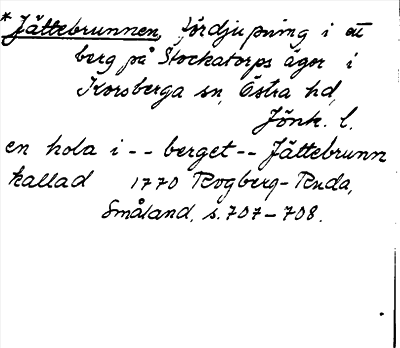 *Jättebrunnen, fördjupning i ett
berg på Stockatorps ägor i
Korsberga sn, Östra hd,
Jönk. l.
en hola i -- berget -- Jättebrunn
kallad 1770 Rogberg-Ruda,
Småland, s. 707-708.